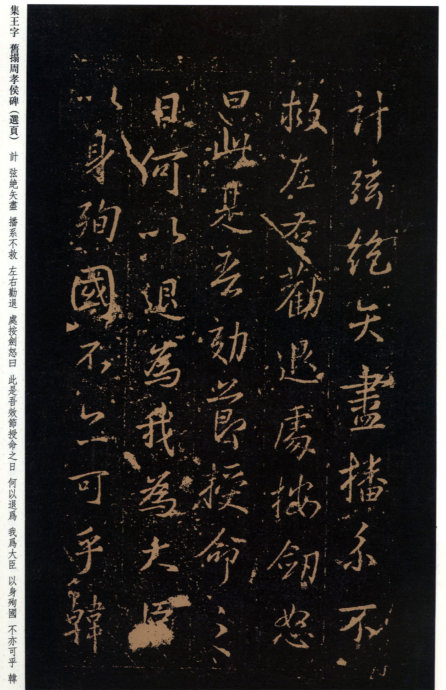 計弦絶矢盡播系不
救左右勸退處按劒怒
曰此是吾効節授命之
日何以退為我為大臣
以身殉國不亦可乎韓
集王字 舊搨周孝侯碑（選頁） 計 弦絶矢盡 播系不救 左右勸退 處按劍怒曰 此是吾效節授命之日 何以退爲 我爲大臣 以身殉國 不亦可乎 韓